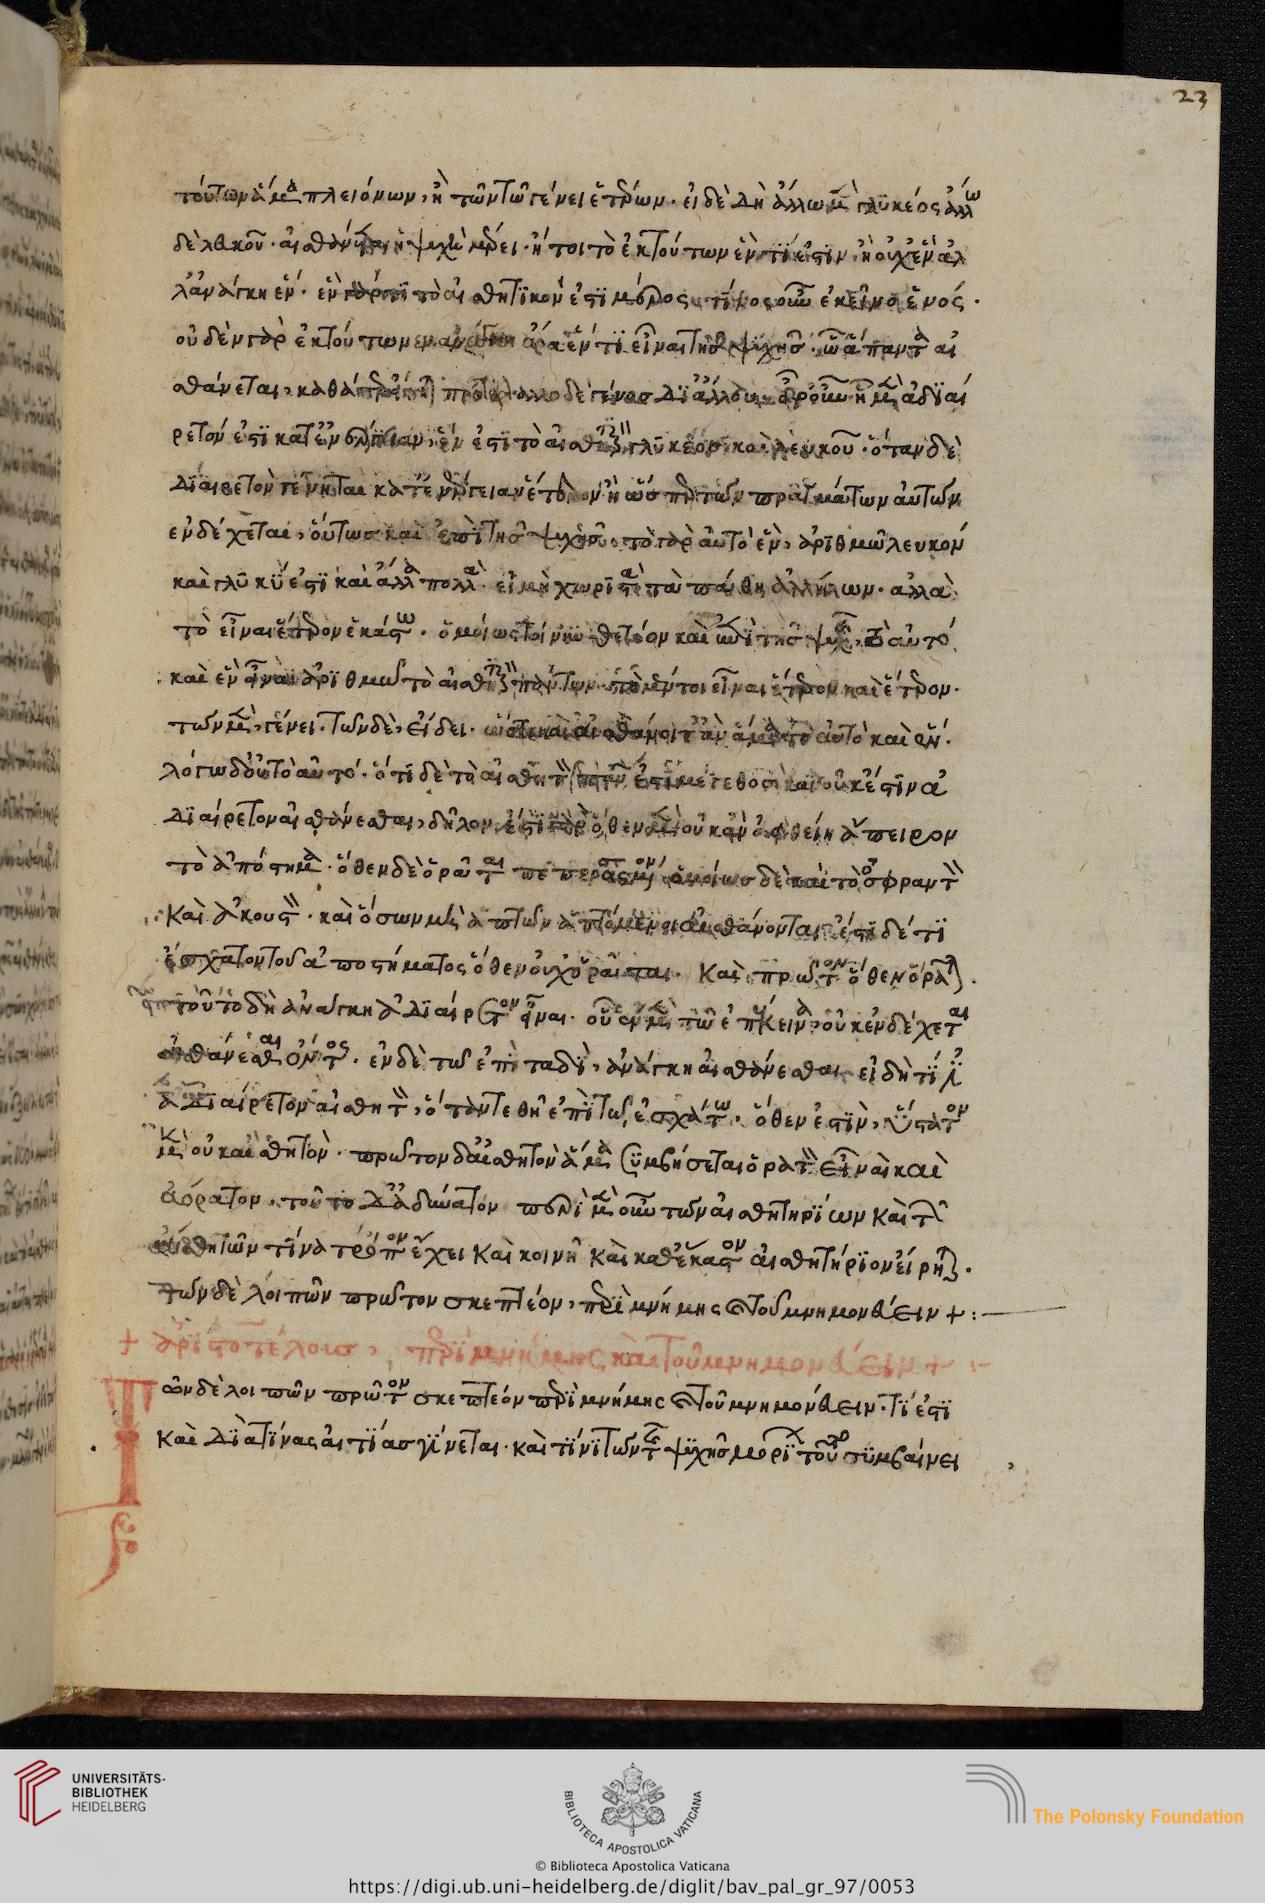 23
τούτων ἅμα πλειόνων, ἢ τῶν τῶ γένει ἑτέρων. εἰ δὲ δὴ ἄλλω μὲν γλυκέος ἄλλω
δὲ λευκοῦ αἰσθάνεται ἡ ψυχὴ μέρει. ἤτοι τὸ ἐκ τούτων ἕν τι ἐστὶν, ἢ οὐχ ἕν ἀλ
λ ἀνάγκη ἕν. ἓν γάρ τι τὸ αἰσθητικόν ἐστι μέρος. τίνος οὖν ἐκεῖνο ἑνός.
οὐδὲν γὰρ ἐκ τούτων ἄρα ἕν τι εἶναι τῆς ψυχῆς. ὧ ἅπαντα αἰ
σθάνεται, καθάπερ εἴρηται πρότερον ἄλλο δὲ γένος δι ἄλλου. ἆρ οὖν ἧ μὲν ἀδιαί
ρετόν ἐστι κατ ἐνέργειαν, ἕν ἐστι τὸ αἰσθητικὸν γλυκέος καὶ λευκοῦ. ὅταν δὲ
διαιρετὸν γένηται κατ ἐνέργειαν ἕτερον ἢ ὥσπερ τῶν πραγμάτων αὐτῶν
ἐνδέχεται, οὕτως καὶ ἐπὶ τῆς ψυχῆς. τὸ γὰρ αὐτὸ ἓν, ἀριθμῶ λευκόν
καὶ γλυκύ ἐστι καὶ ἄλλα πολλά. εἰ μὴ χωριστὰ τὰ πάθη ἀλλήλων. ἀλλὰ
τὸ εἶναι ἕτερον ἑκάστω. ὁμοίως τοίνυν θετέον καὶ ἐπὶ τῆς ψυχῆς, τὸ αὐτό
καὶ ἓν εἶναι ἀριθμῶ τὸ αἰσθητικὸν πάντων. τὸ μέντοι εἶναι ἕτερον καὶ ἕτερον.
τῶν μὲν, γένει. τῶν δὲ, εἴδει. ὥστε καὶ αἰσθάνοιτ ἂν ἅμα τὸ αὐτὸ καὶ ἕν.
λόγω δ οὐ τὸ αὐτό. ὅτι δὲ τὸ αἰσθητὸν πᾶν ἐστι μέγεθος καὶ οὐκ ἔστιν ἀ
διαίρετον αἰσθάνεσθαι, δῆλον. ἔστι γὰρ ὅθεν μὲν οὐκ ἂν ὀφθείη ἄπειρον
τὸ ἀπόστημα. ὅθεν δὲ ὁρᾶται πεπερασμένον. ὁμοίως δὲ καὶ τὸ ὀσφραντὸν
καὶ ἀκουστόν. καὶ ὅσων μὴ αὐτῶν ἁπτόμενοι αἰσθάνονται. ἔστι δέ τι
ἔσχατον τοῦ ἀποστήματος ὅθεν οὐχ ὁρᾶται. καὶ πρῶτον ὅθεν ὁρᾶται.
τοῦτο δὴ ἀνάγκη ἀδιαίρετον εἶναι. οὗ ἐν μὲν τῶ ἐπέκεινα οὐκ ἐνδέχεται
αἰσθάνεσθαι ὄντος. ἐν δὲ τῶ ἐπὶ ταδὶ, ἀνάγκη αἰσθάνεσθαι. εἰ δή τι
ἀδιαίρετον αἰσθητὸν, ὅταν τεθῆ ἐπὶ τῶ ἐσχάτω. ὅθεν ἐστὶν, ὕστατον
μὲν οὐκ αἰσθητὸν. πρῶτον δ αἰσθητὸν ἅμα συμβήσεται ὁρατὸν εἶναι καὶ
ἀόρατον. τοῦτο δ ἀδύνατον περὶ μὲν οὖν τῶν αἰσθητηρίων καὶ τῶν
αἰσθητῶν τίνα τρόπον ἔχει καὶ κοινῆ καὶ καθ ἕκαστον αἰσθητήριον εἴρηται.
τῶν δὲ λοιπῶν πρῶτον σκεπτέον, περὶ μνήμης καὶ τοῦ μνημονεύειν +:
+ ἀριστοτέλους, περὶ μνήμης καὶ τοῦ μνημονεύειν + :-
Τῶν δὲ λοιπῶν πρῶτον σκεπτέον περὶ μνήμης καὶ τοῦ μνημονεύειν. τί ἐστι
καὶ διὰ τίνας αἰτίας γίνεται. καὶ τίνι τῶν τῆς ψυχῆς μορίων τοῦτο συμβαίνει
UNIVERSITÄTS-
BIBLIOTHEK
HEIDELBERG
BIBLIOTECA APOSTOLICA VATICANA
The Polonsky Foundation
© Biblioteca Apostolica Vaticana
https://digi.ub.uni-heidelberg.de/diglit/bav_pal_gr_97/0053